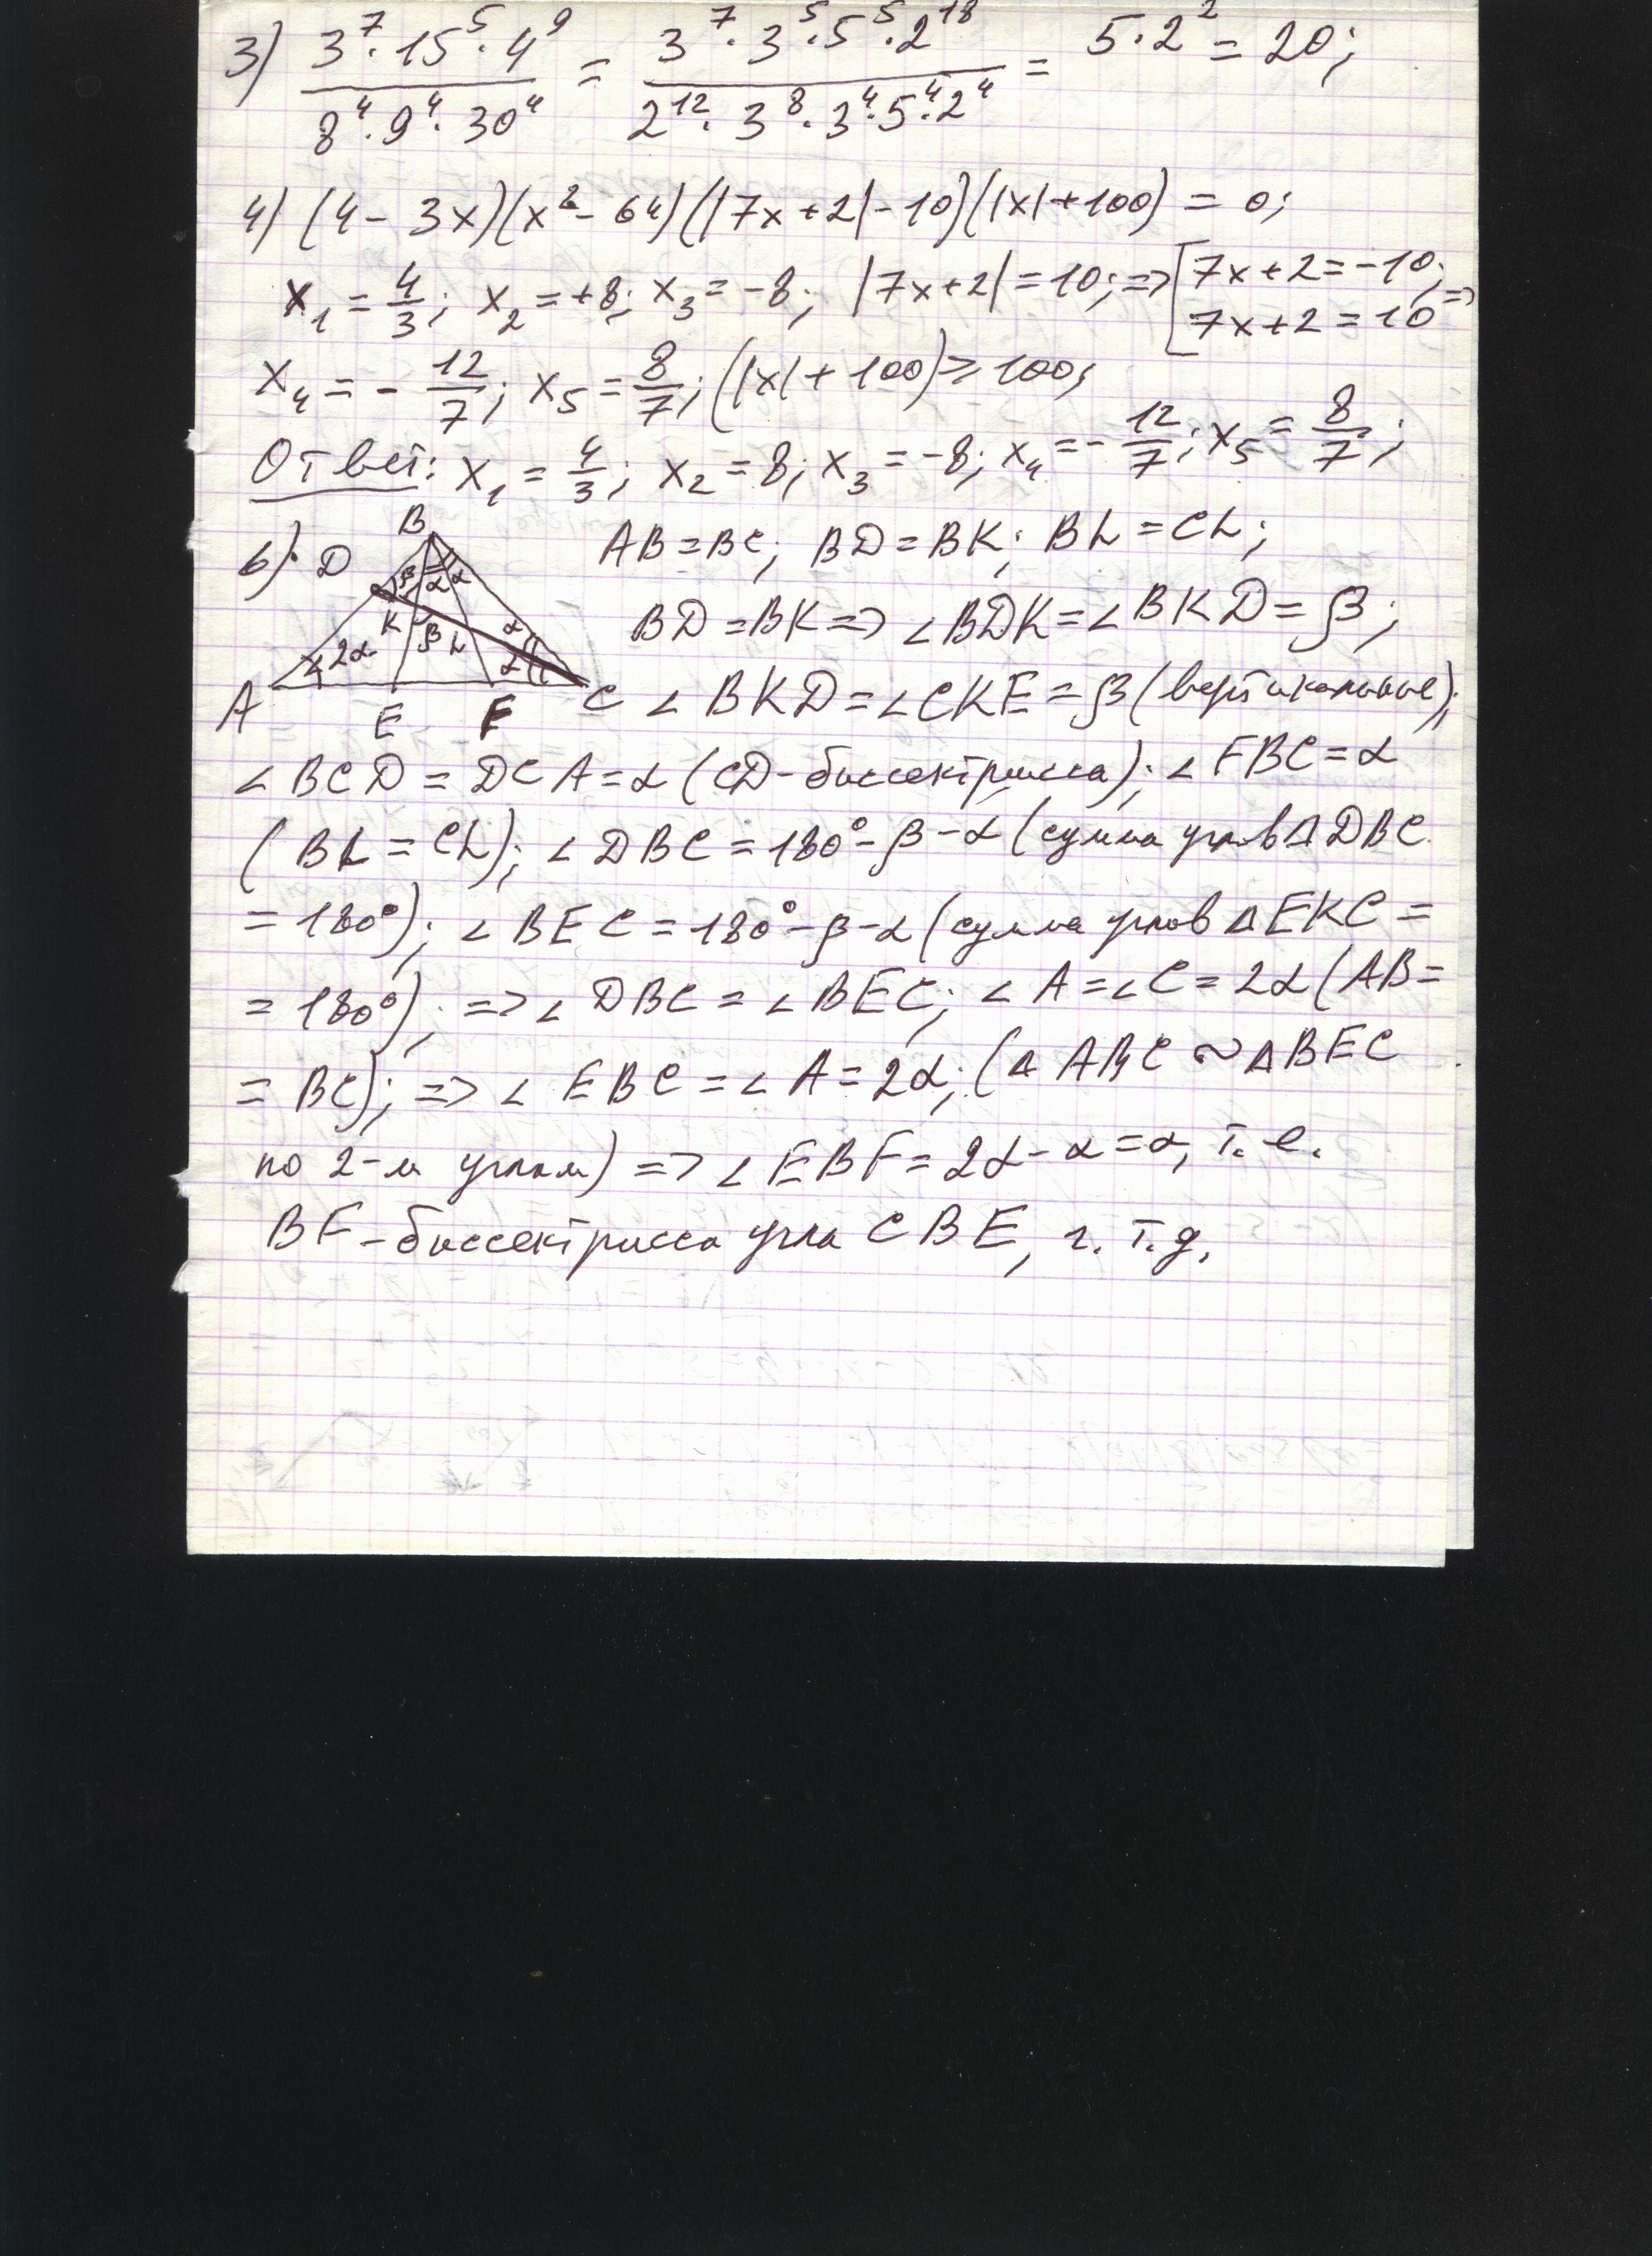 3) (3^7·15^5·4^9)/(8^4·9^4·30^4) = (3^7·3^5·5^5·2^18)/(2^12·3^8·3^4·5^4·2^4) = 5·2^2 = 20;
4) (4 - 3x)(x^2 - 64)(|7x+2|-10)(|x|+100) = 0;
x₁ = 4/3; x₂ = +8; x₃ = -8; |7x+2| = 10; => [7x+2=-10; 7x+2=10 =>
x₄ = - 12/7; x₅ = 8/7; (|x| + 100) ⩾ 100;
Ответ: x₁ = 4/3; x₂ = 8; x₃ = -8; x₄ = - 12/7; x₅ = 8/7;
6). AB = BC; BD = BK; BL = CL;
B
D
β α α
K β L α
2α α
A E F C
BD = BK => ∠BDK = ∠BKD = β;
∠BKD = ∠CKE = β (вертикальные);
∠BCD = DCA = α (CD - биссектрисса); ∠FBC = α
(BL = CL); ∠DBC = 180° - β - α (сумма углов △DBC
= 180°); ∠BEC = 180° - β - α (сумма углов △EKC =
= 180°); => ∠DBC = ∠BEC; ∠A = ∠C = 2α (AB =
= BC); => ∠EBC = ∠A = 2α; (△ABC ~ △BEC
по 2-м углам) => ∠EBF = 2α - α = α, т. е.
BF - биссектрисса угла CBE, ч. т. д.